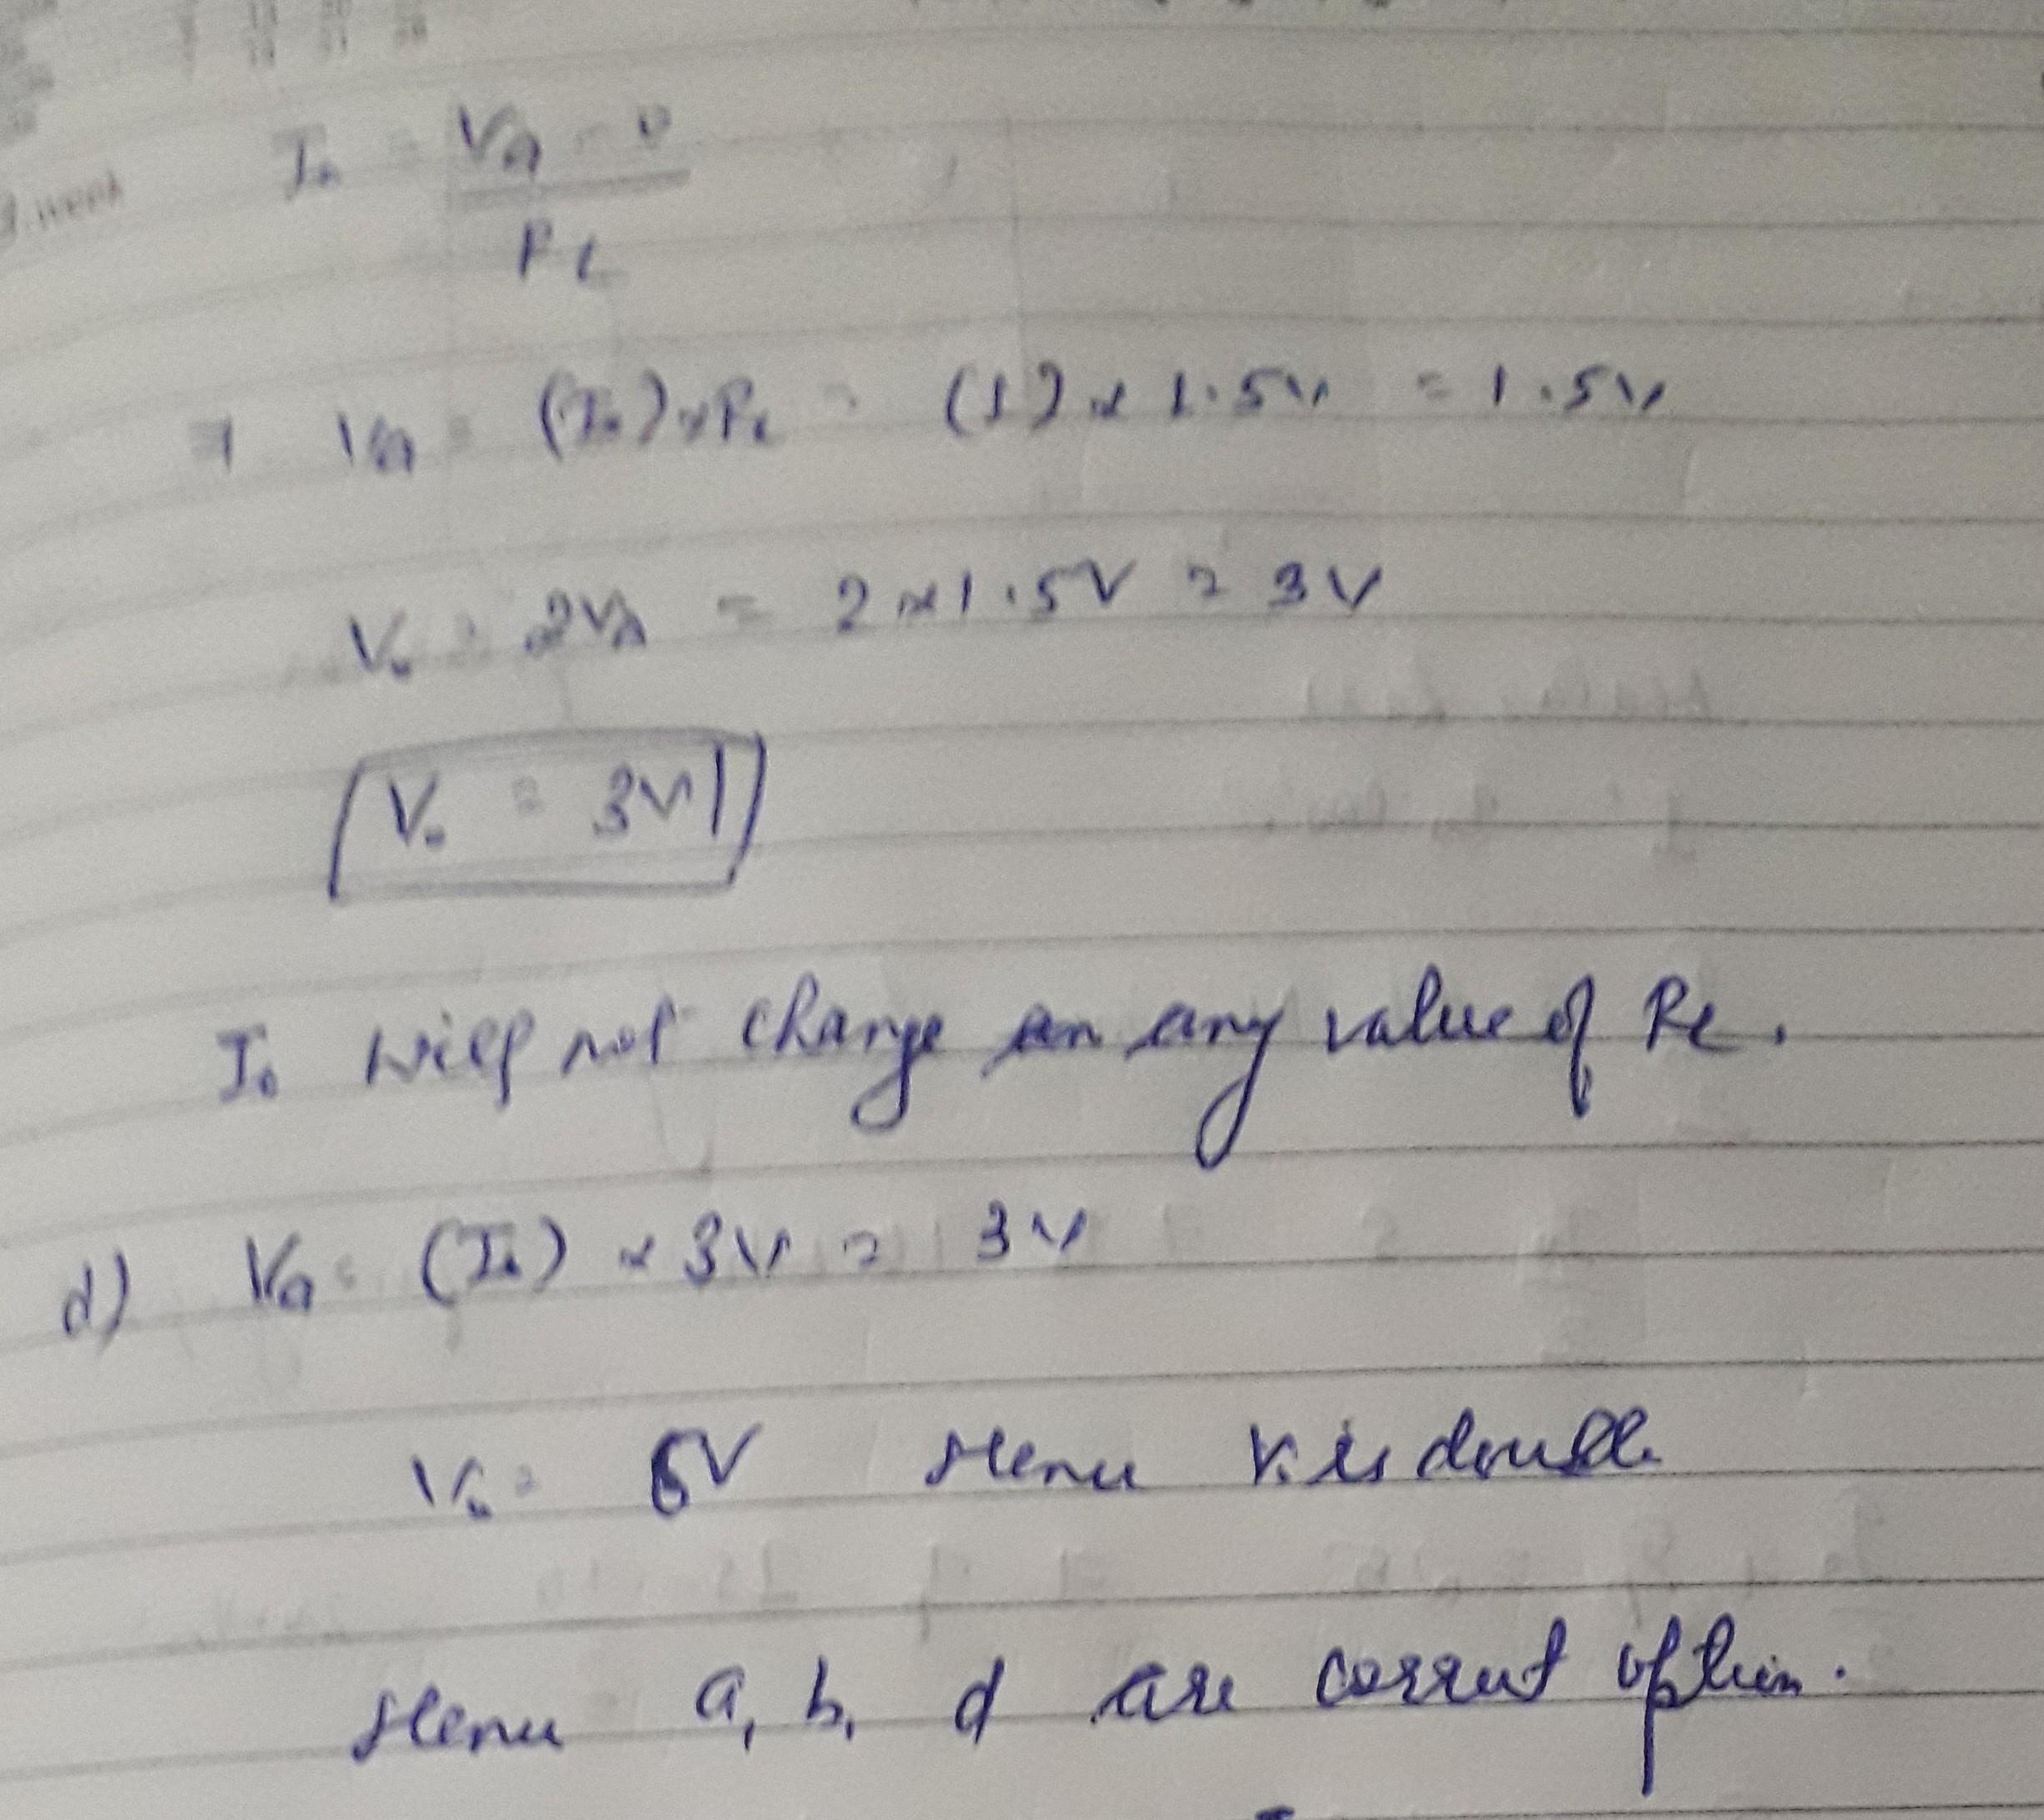 I₀ = Va - 0
RL
⇒ Va = (I₀) × RL = (1) × 1.5V = 1.5V
V₀ = 2Va = 2 × 1.5V = 3V
V₀ = 3V
I₀ will not change on any value of RL.
d) Va = (I₀) × 3V = 3V
V₀ = 6V Hence V₀ is double
Hence a, b, d are correct option.